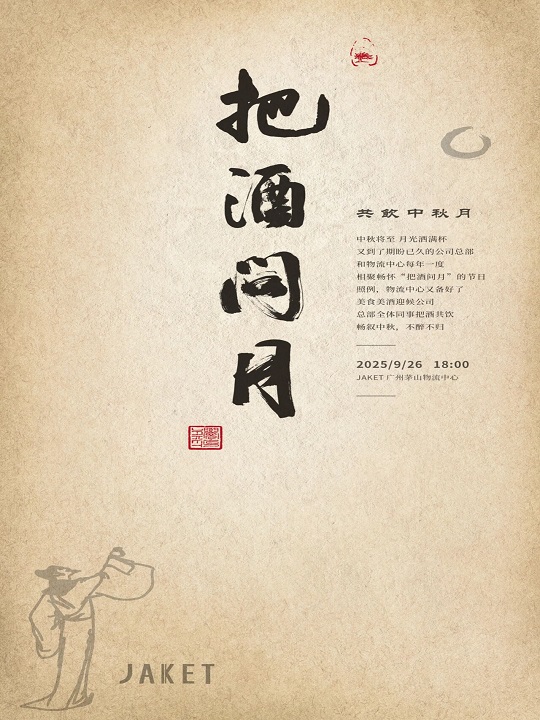 把酒问月
共飲中秋月
中秋将至 月光洒满杯
又到了期盼已久的公司总部
和物流中心每年一度
相聚畅怀“把酒问月”的节日
照例，物流中心又备好了
美食美酒迎候公司
总部全体同事把酒共饮
畅叙中秋，不醉不归
2025/9/26 18:00
JAKET 广州茅山物流中心
JAKET